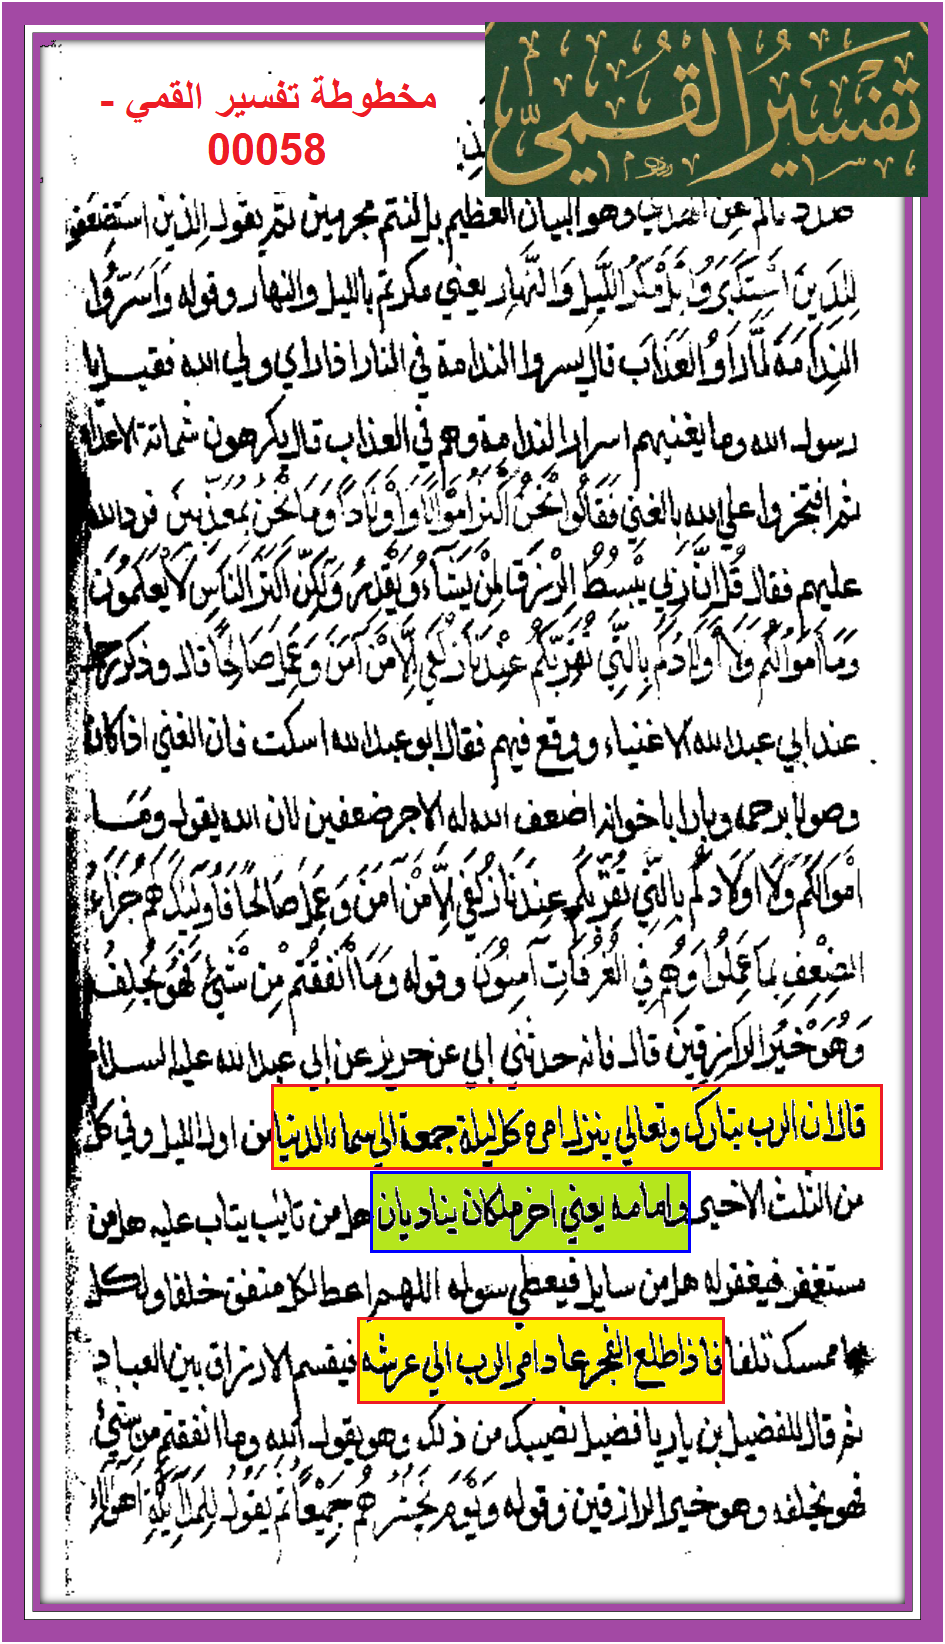 تفسير القمي
مخطوطة تفسير القمي -
00058
صددناكم عن الهدى وهو البيان العظيم بل كنتم مجرمين ثم يقول الذين استضعفوا
لِلَّذِينَ اسْتَكْبَرُوا بَلْ مَكْرُ اللَّيْلِ وَالنَّهَارِ يعني مكرتم بالليل والنهار وقوله وَأَسَرُّوا
النَّدَامَةَ لَمَّا رَأَوُا الْعَذَابَ قال يسروا الندامة في النار اذا راي ولي الله فقيل يا
رسول الله وما يغنيهم اسرار الندامة وهم في العذاب قال يكرهون شماتة الاعداء
ثم افتخروا علي الله بالغني فَقَالُوا نَحْنُ أَكْثَرُ أَمْوَالًا وَأَوْلَادًا وَمَا نَحْنُ بِمُعَذَّبِينَ فرد الله
عليهم فقال قُلْ إِنَّ رَبِّي يَبْسُطُ الرِّزْقَ لِمَنْ يَشَاءُ وَيَقْدِرُ وَلَكِنَّ أَكْثَرَ النَّاسِ لَا يَعْلَمُونَ
وَمَا أَمْوَالُكُمْ وَلَا أَوْلَادُكُمْ بِالَّتِي تُقَرِّبُكُمْ عِنْدَنَا زُلْفَى إِلَّا مَنْ آمَنَ وَعَمِلَ صَالِحًا قال وذكر رجل
عند ابي عبد الله الاغنياء ووقع فيهم فقال ابو عبد الله اسكت فان الغني اذا كان
وصولا برحمه وبارا باخوانه اضعف الله له الاجر ضعفين لان الله يقول وَمَا
أَمْوَالُكُمْ وَلَا أَوْلَادُكُمْ بِالَّتِي تُقَرِّبُكُمْ عِنْدَنَا زُلْفَى إِلَّا مَنْ آمَنَ وَعَمِلَ صَالِحًا فَأُولَئِكَ لَهُمْ جَزَاءُ
الضِّعْفِ بِمَا عَمِلُوا وَهُمْ فِي الْغُرُفَاتِ آمِنُونَ وقوله وَمَا أَنْفَقْتُمْ مِنْ شَيْءٍ فَهُوَ يُخْلِفُهُ
وَهُوَ خَيْرُ الرَّازِقِينَ قال فانه حدثني ابي عن حريز عن ابي عبد الله عليه السلام
قال ان الرب تبارك وتعالي ينزل امره كل ليلة جمعة الي سماء الدنيا من اول الليل وفي كل
من الثلث الاخير وامامه يعني اخر ملكان يناديان هل من تائب يتاب عليه هل من
مستغفر فيغفر له هل من سايل فيعطي سوله اللهم اعط لكل منفق خلفا ولكل
ممسك تلفا فاذا طلع الفجر عاد امر الرب الي عرشه فيقسم الارزاق بين العباد
ثم قال للفضيل بن يار يا فضيل نصيبك من ذلك وهو يقول الله وما انفقتم من شيئ
فهو يخلفه وهو خير الرازقين وقوله وَيَوْمَ نَحْشُرُهُمْ جَمِيعًا ثُمَّ يَقُولُ لِلْمَلَائِكَةِ أَهَؤُلَاءِ